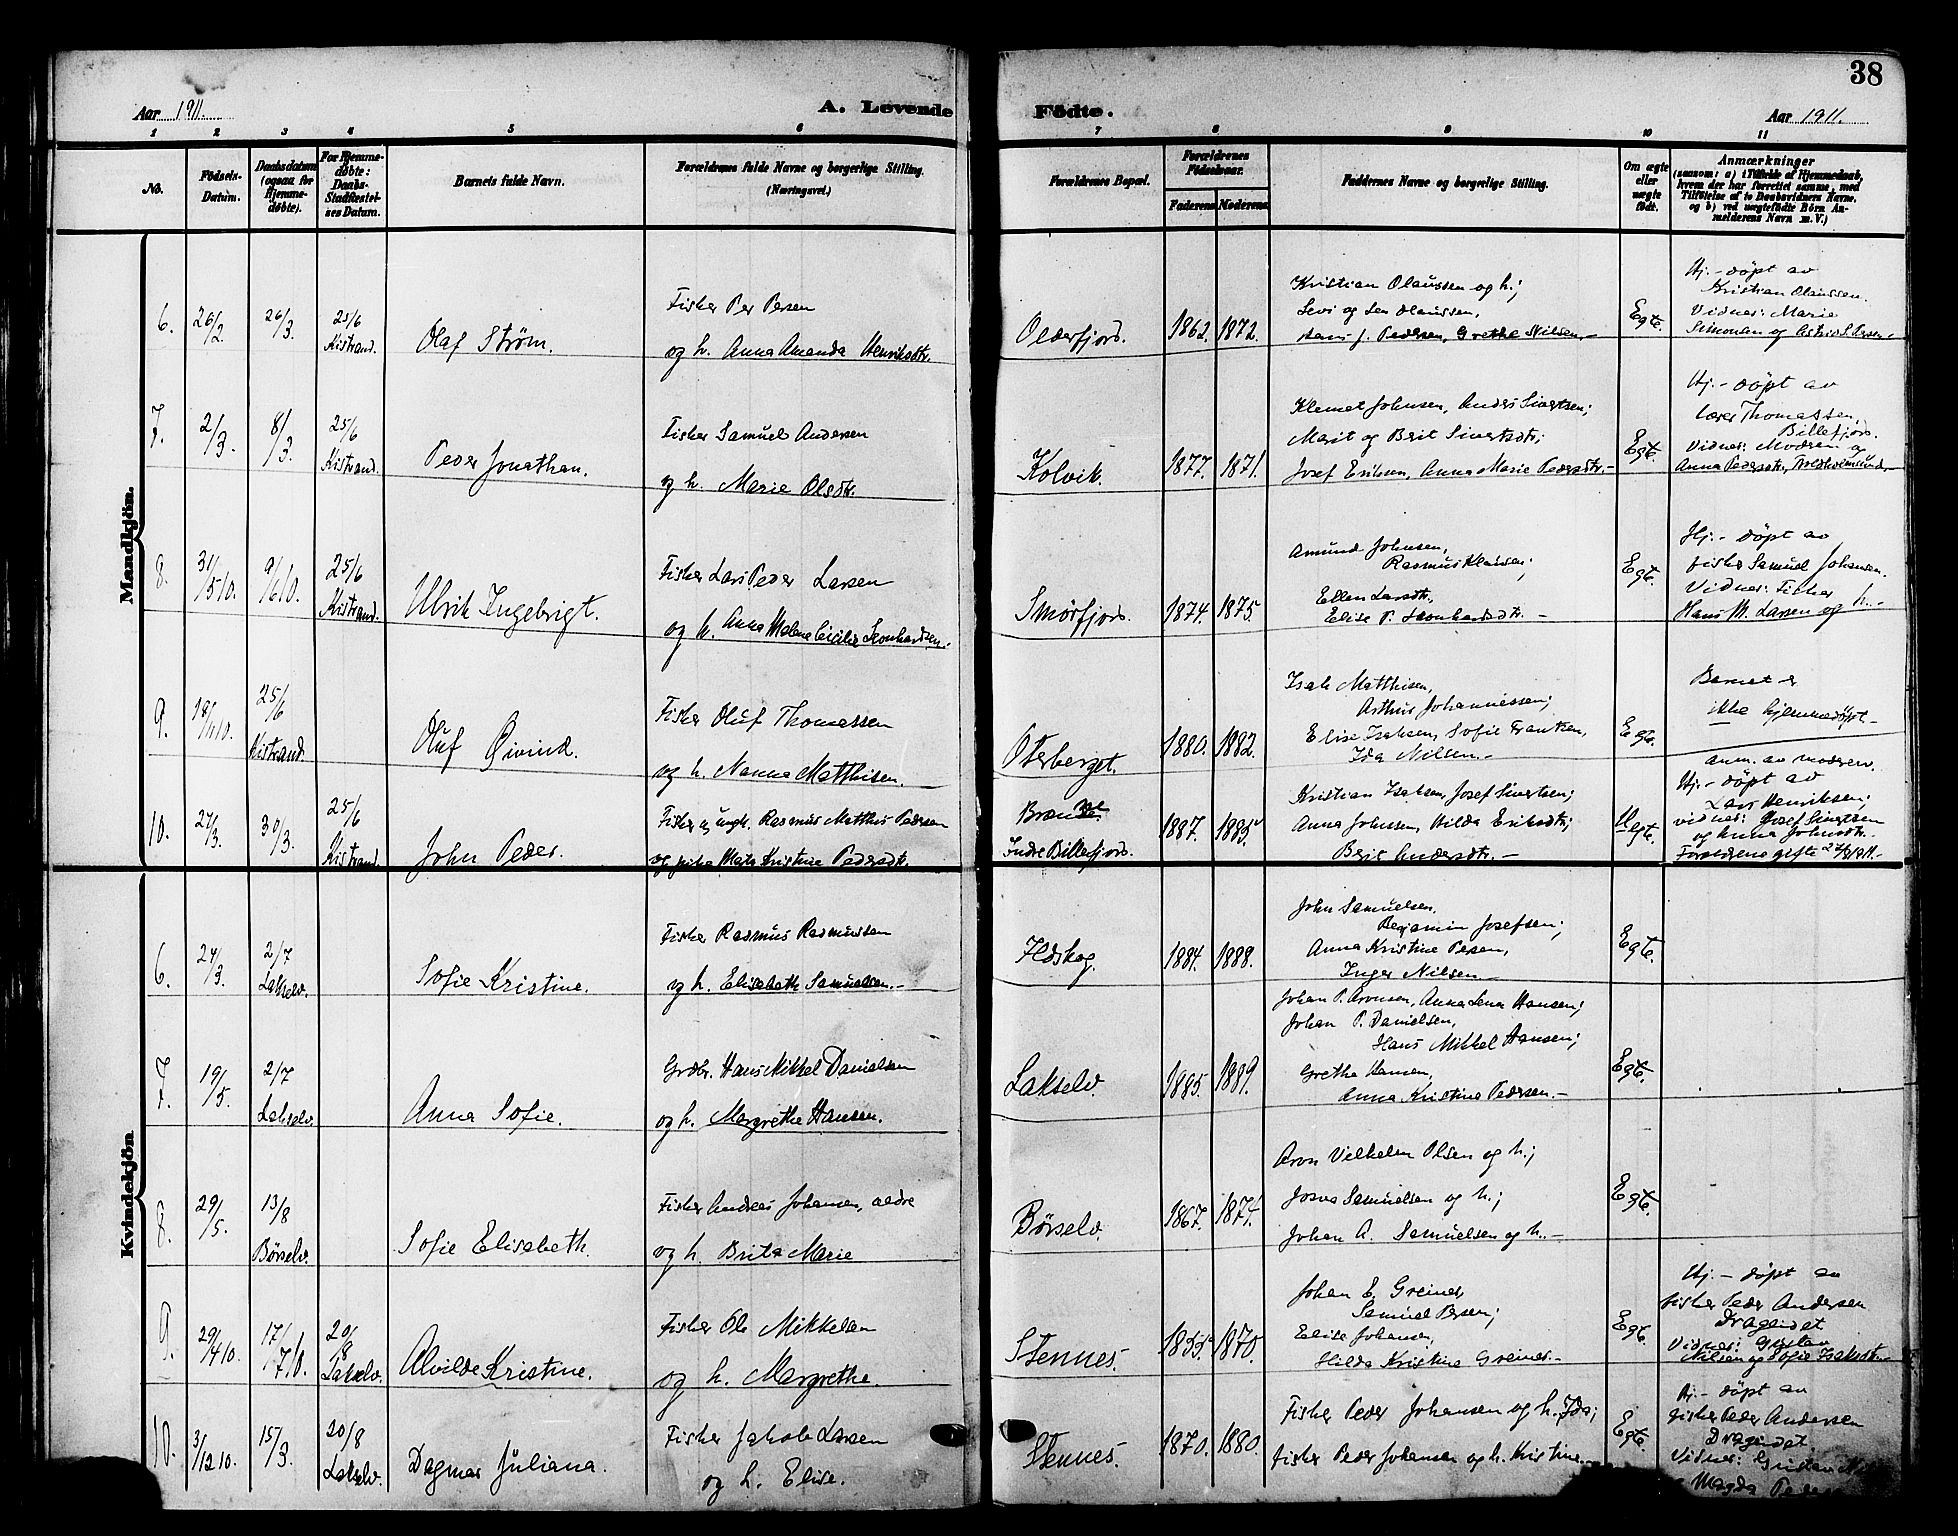 38
Aar 1911.
A. Levende
Födte.
Aar 1911.
1 2 3 4 5 6 7 8 9 10 11
No.
Födsels-
Datum.
Daabsdatum
(ogsaa for
Hjemme-
døbte).
For Hjemme-
døbte:
Daabs-
Stadfæstel-
ses Datum.
Barnets fulde Navn.
Forældrenes fulde Navne og borgerlige Stilling.
(Næringsvei.)
Forældrenes Bopæl.
Forældrenes
Fødselsaar.
Faderens
Moderens
Faddernes Navne og borgerlige Stilling.
Om ægte
eller
uægte
født.
Anmærkninger
(saasom: a) i Tilfælde af Hjemmedaab,
hvem der har forrettet samme, med
Tilføielse af to Daabsvidners Navne,
og b) ved uægtefödte Börn An-
melderens Navn m. V.)
Mandkjön.
6.
26/2
26/3
25/6
Kistrand.
Olaf Strøm.
Fisker Per Persen
og h. Anna Amanda Henriksdtr.
Olderfjord.
1862.
1872.
Kristian Olaussen og h.;
Levi og Olaussen,
Hans J. Pedersen, Grethe Nilsen.-
Egte.
Hj.- döpt av
Kristian Olaussen.
Vidnes: Marie
Simonsen og
7.
2/3.
8/3.
25/6
Kistrand.
Peder Jonathan.
Fisker Samuel Andersen
og h. Marie Olsdtr.
Kolvik.
1877.
1871.
Klemet Johnsen, Anders Sivertsen;
Marit og Berit Sivertsdtr;
Josef Eriksen, Anna Marie Pedersdtr.-
Egte.
Hj.- döpt av
lærer Thomassen,
Billefjord.
Vidnes: Modren og
Anna Pedersdtr,
8.
31/5 10.
9/6 10.
25/6
Kistrand.
Ulrik Ingebrigt.
Fisker Lars Peder Larsen
og h. Anna Malene Cecilie Leonhardsen.
Smörfjord.
1874.
1875.
Amund Johnsen,
Rasmus Klausen;
Ellen Larsdtr,
Elise P. Leonhardsdtr.-
Egte.
Hj.- döpt av
fisker Samuel Johansen.
Vidnes: Fisker
Hans M. Larsen og h.-
9.
18/11 10.
25/6
Kistrand.
Oluf Øivind.
Fisker Oluf Thomassen
og h. Nanna Matthisen.
Oterberget.
1880.
1882.
Isak Matthisen,
Arthur Johannessen;
Elise Isaksen, Sofie Frantzen,
Ida Nilsen.-
Egte.
Barnet er
ikke hjemmedöpt-
anm. av modren.
10.
27/3.
30/3.
25/6
Kistrand.
John Peder.
Fisker og ungk. Rasmus Matthis Pedersen
og pike Kristine Pedersdtr.
Indre Billefjord.
1887.
1885
Kristian Isaksen, Josef Sivertsen;
Anna Johnsen, Hilda Eriksdtr;
Berit Andersdtr.-
Uegte.
Hj.- döpt av
Lars Henriksen;
vidnes: Josef Sivertsen
og Anna Johnsdtr.
Forældrene gifte
Kvindekjön
6.
27/3.
2/7
Lakselv.
Sofie Kristine.
Fisker Rasmus Rasmussen
og h. Elisabeth Samuelsen.-
Ildskog.
1884.
1888.
John Samuelsen,
Benjamin Josefsen;
Anna Kristine Persen,
Inger Nilsen-
Egte.
7.
19/5.
2/7
Lakselv.
Anna Sofie.
Grdbr. Hans Mikkel Danielsen
og h. Margrethe Hansen.
Lakselv
1885.
1889.
Johan P. Aronsen, Anna Lena Hansen;
Johan P. Danielsen,
Hans Mikkel Hansen;
Grethe Hansen,
Anna Kristine Pedersen.-
Egte.
8.
29/5.
13/8
Børselv.
Sofie Elisabeth.
Fisker Andreas Johansen, ældre
og h. Brita Marie
Börselv.
1867.
1874.
Aron Vilhelm Olsen og h.;
Josva Samuelsen og h.;
Johan A. Samuelsen og h.-
Egte.
9.
29/4 10.
17/7 10.
20/8
Lakselv.
Alvilde Kristine.
Fisker Ole Mikkelsen
og h. Margrethe.
Stennes.
1855.
1870.
Johan E. Greiner,
Samuel Persen;
Elise Johansen,
Hilda Kristine Greiner.-
Egte.
Hj.- döpt av
fisker Peder Andersen
Drageidet
Vidnes: Gustav
Nilsen og Sofie Isaksdtr.-
10.
3/12 10.
15/3.
20/8
Lakselv.
Dagmar Juliana.
Fisker Jakob Larsen
og h. Elise.
Stennes.
1870.
1880.
Fisker Peder Johansen og h. Ida;
fisker Peder Johansen og h. Kristine.-
Egte.
Hj.- döpt av
fisker Peder Andersen
Drageidet.
Vidnes: Gustav
Magda